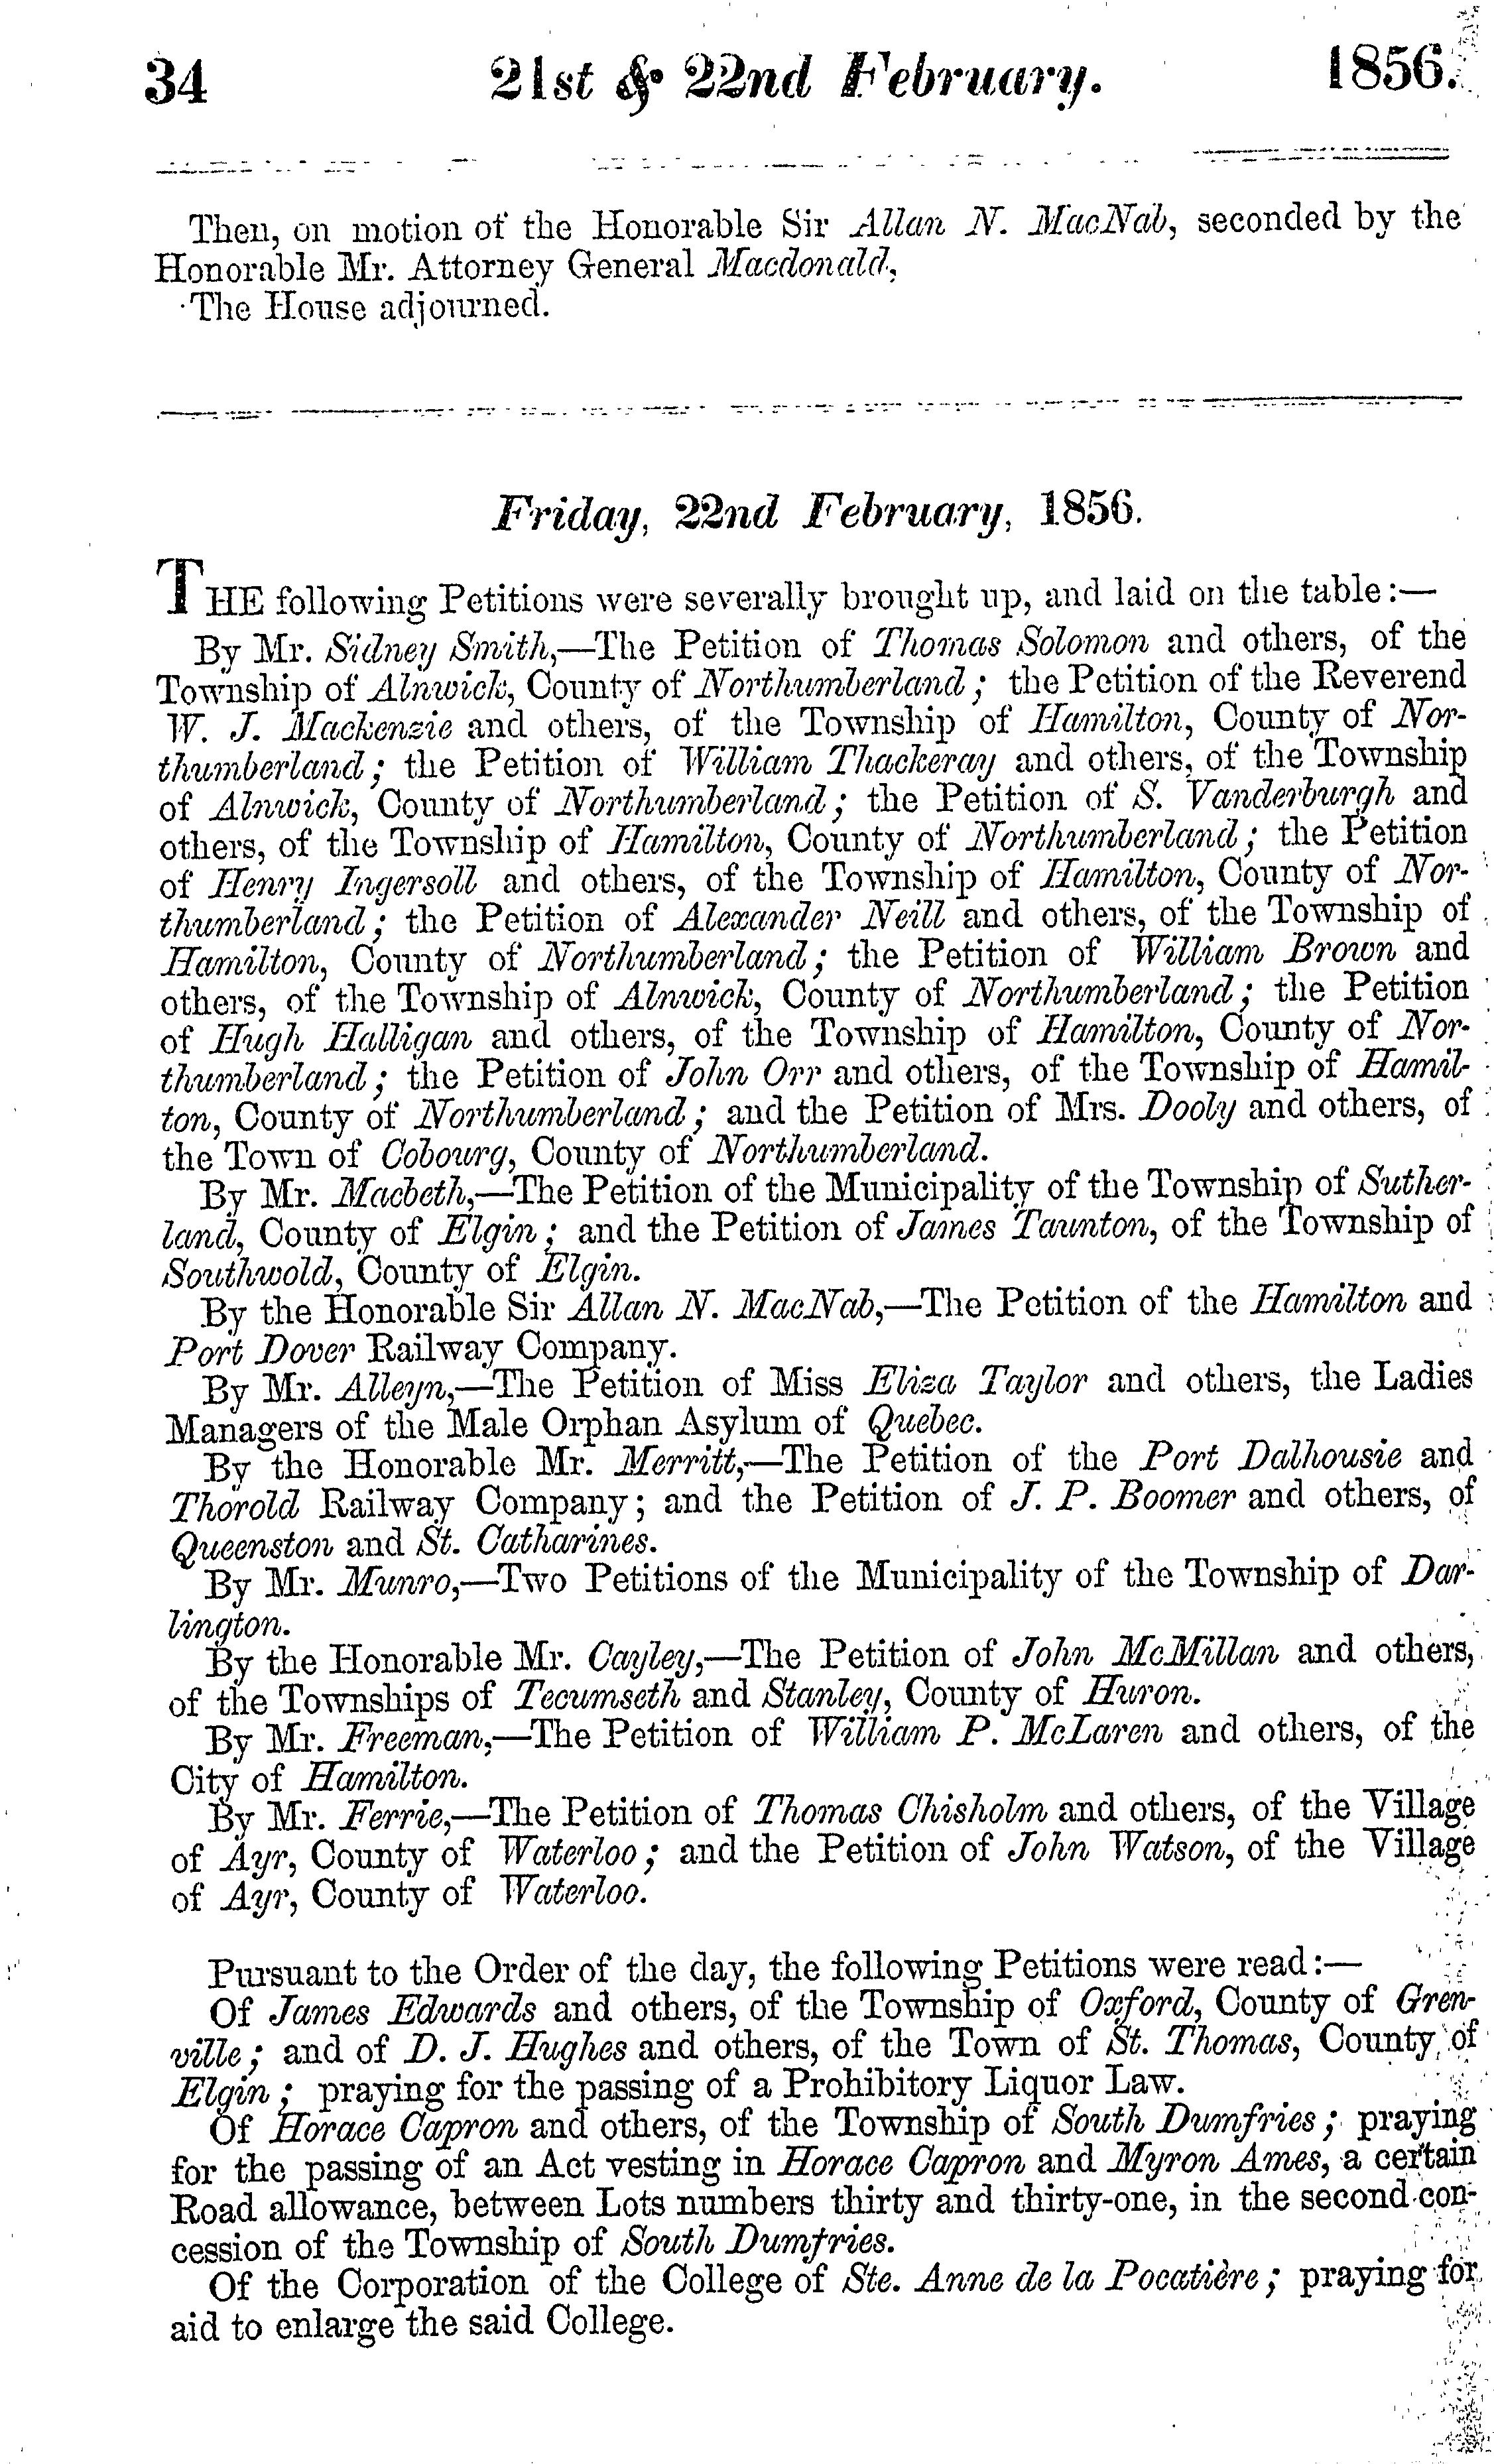 34 21st & 22nd February. 1856.
Then, on motion of the Honorable Sir Allan N. MacNab, seconded by the
Honorable Mr. Attorney General Macdonald,
The House adjourned.
Friday, 22nd February, 1856.
THE following Petitions were severally brought up, and laid on the table:—
By Mr. Sidney Smith,—The Petition of Thomas Solomon and others, of the
Township of Alnwick, County of Northumberland; the Petition of the Reverend
W. J. Mackenzie and others, of the Township of Hamilton, County of Nor-
thumberland; the Petition of William Thackeray and others, of the Township
of Alnwick, County of Northumberland; the Petition of S. Vanderburgh and
others, of the Township of Hamilton, County of Northumberland; the Petition
of Henry Ingersoll and others, of the Township of Hamilton, County of Nor-
thumberland; the Petition of Alexander Neill and others, of the Township of
Hamilton, County of Northumberland; the Petition of William Brown and
others, of the Township of Alnwick, County of Northumberland; the Petition
of Hugh Halligan and others, of the Township of Hamilton, County of Nor-
thumberland; the Petition of John Orr and others, of the Township of Hamil-
ton, County of Northumberland; and the Petition of Mrs. Dooly and others, of
the Town of Cobourg, County of Northumberland.
By Mr. Macbeth,—The Petition of the Municipality of the Township of Suther-
land, County of Elgin; and the Petition of James Taunton, of the Township of
Southwold, County of Elgin.
By the Honorable Sir Allan N. MacNab,—The Petition of the Hamilton and
Port Dover Railway Company.
By Mr. Alleyn,—The Petition of Miss Eliza Taylor and others, the Ladies
Managers of the Male Orphan Asylum of Quebec.
By the Honorable Mr. Merritt,—The Petition of the Port Dalhousie and
Thorold Railway Company; and the Petition of J. P. Boomer and others, of
Queenston and St. Catharines.
By Mr. Munro,—Two Petitions of the Municipality of the Township of Dar-
lington.
By the Honorable Mr. Cayley,—The Petition of John McMillan and others,
of the Townships of Tecumseth and Stanley, County of Huron.
By Mr. Freeman,—The Petition of William P. McLaren and others, of the
City of Hamilton.
By Mr. Ferrie,—The Petition of Thomas Chisholm and others, of the Village
of Ayr, County of Waterloo; and the Petition of John Watson, of the Village
of Ayr, County of Waterloo.
Pursuant to the Order of the day, the following Petitions were read:—
Of James Edwards and others, of the Township of Oxford, County of Gren-
ville; and of D. J. Hughes and others, of the Town of St. Thomas, County of
Elgin; praying for the passing of a Prohibitory Liquor Law.
Of Horace Capron and others, of the Township of South Dumfries; praying
for the passing of an Act vesting in Horace Capron and Myron Ames, a certain
Road allowance, between Lots numbers thirty and thirty-one, in the second con-
cession of the Township of South Dumfries.
Of the Corporation of the College of Ste. Anne de la Pocatière; praying for
aid to enlarge the said College.